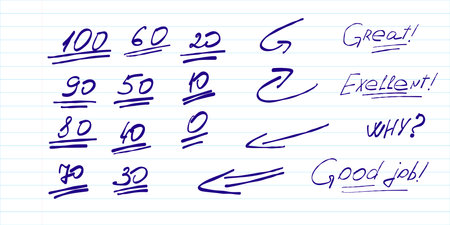 100 60 20 Great!
90 50 10 Exellent!
80 40 0 WHY?
70 30 Good job!